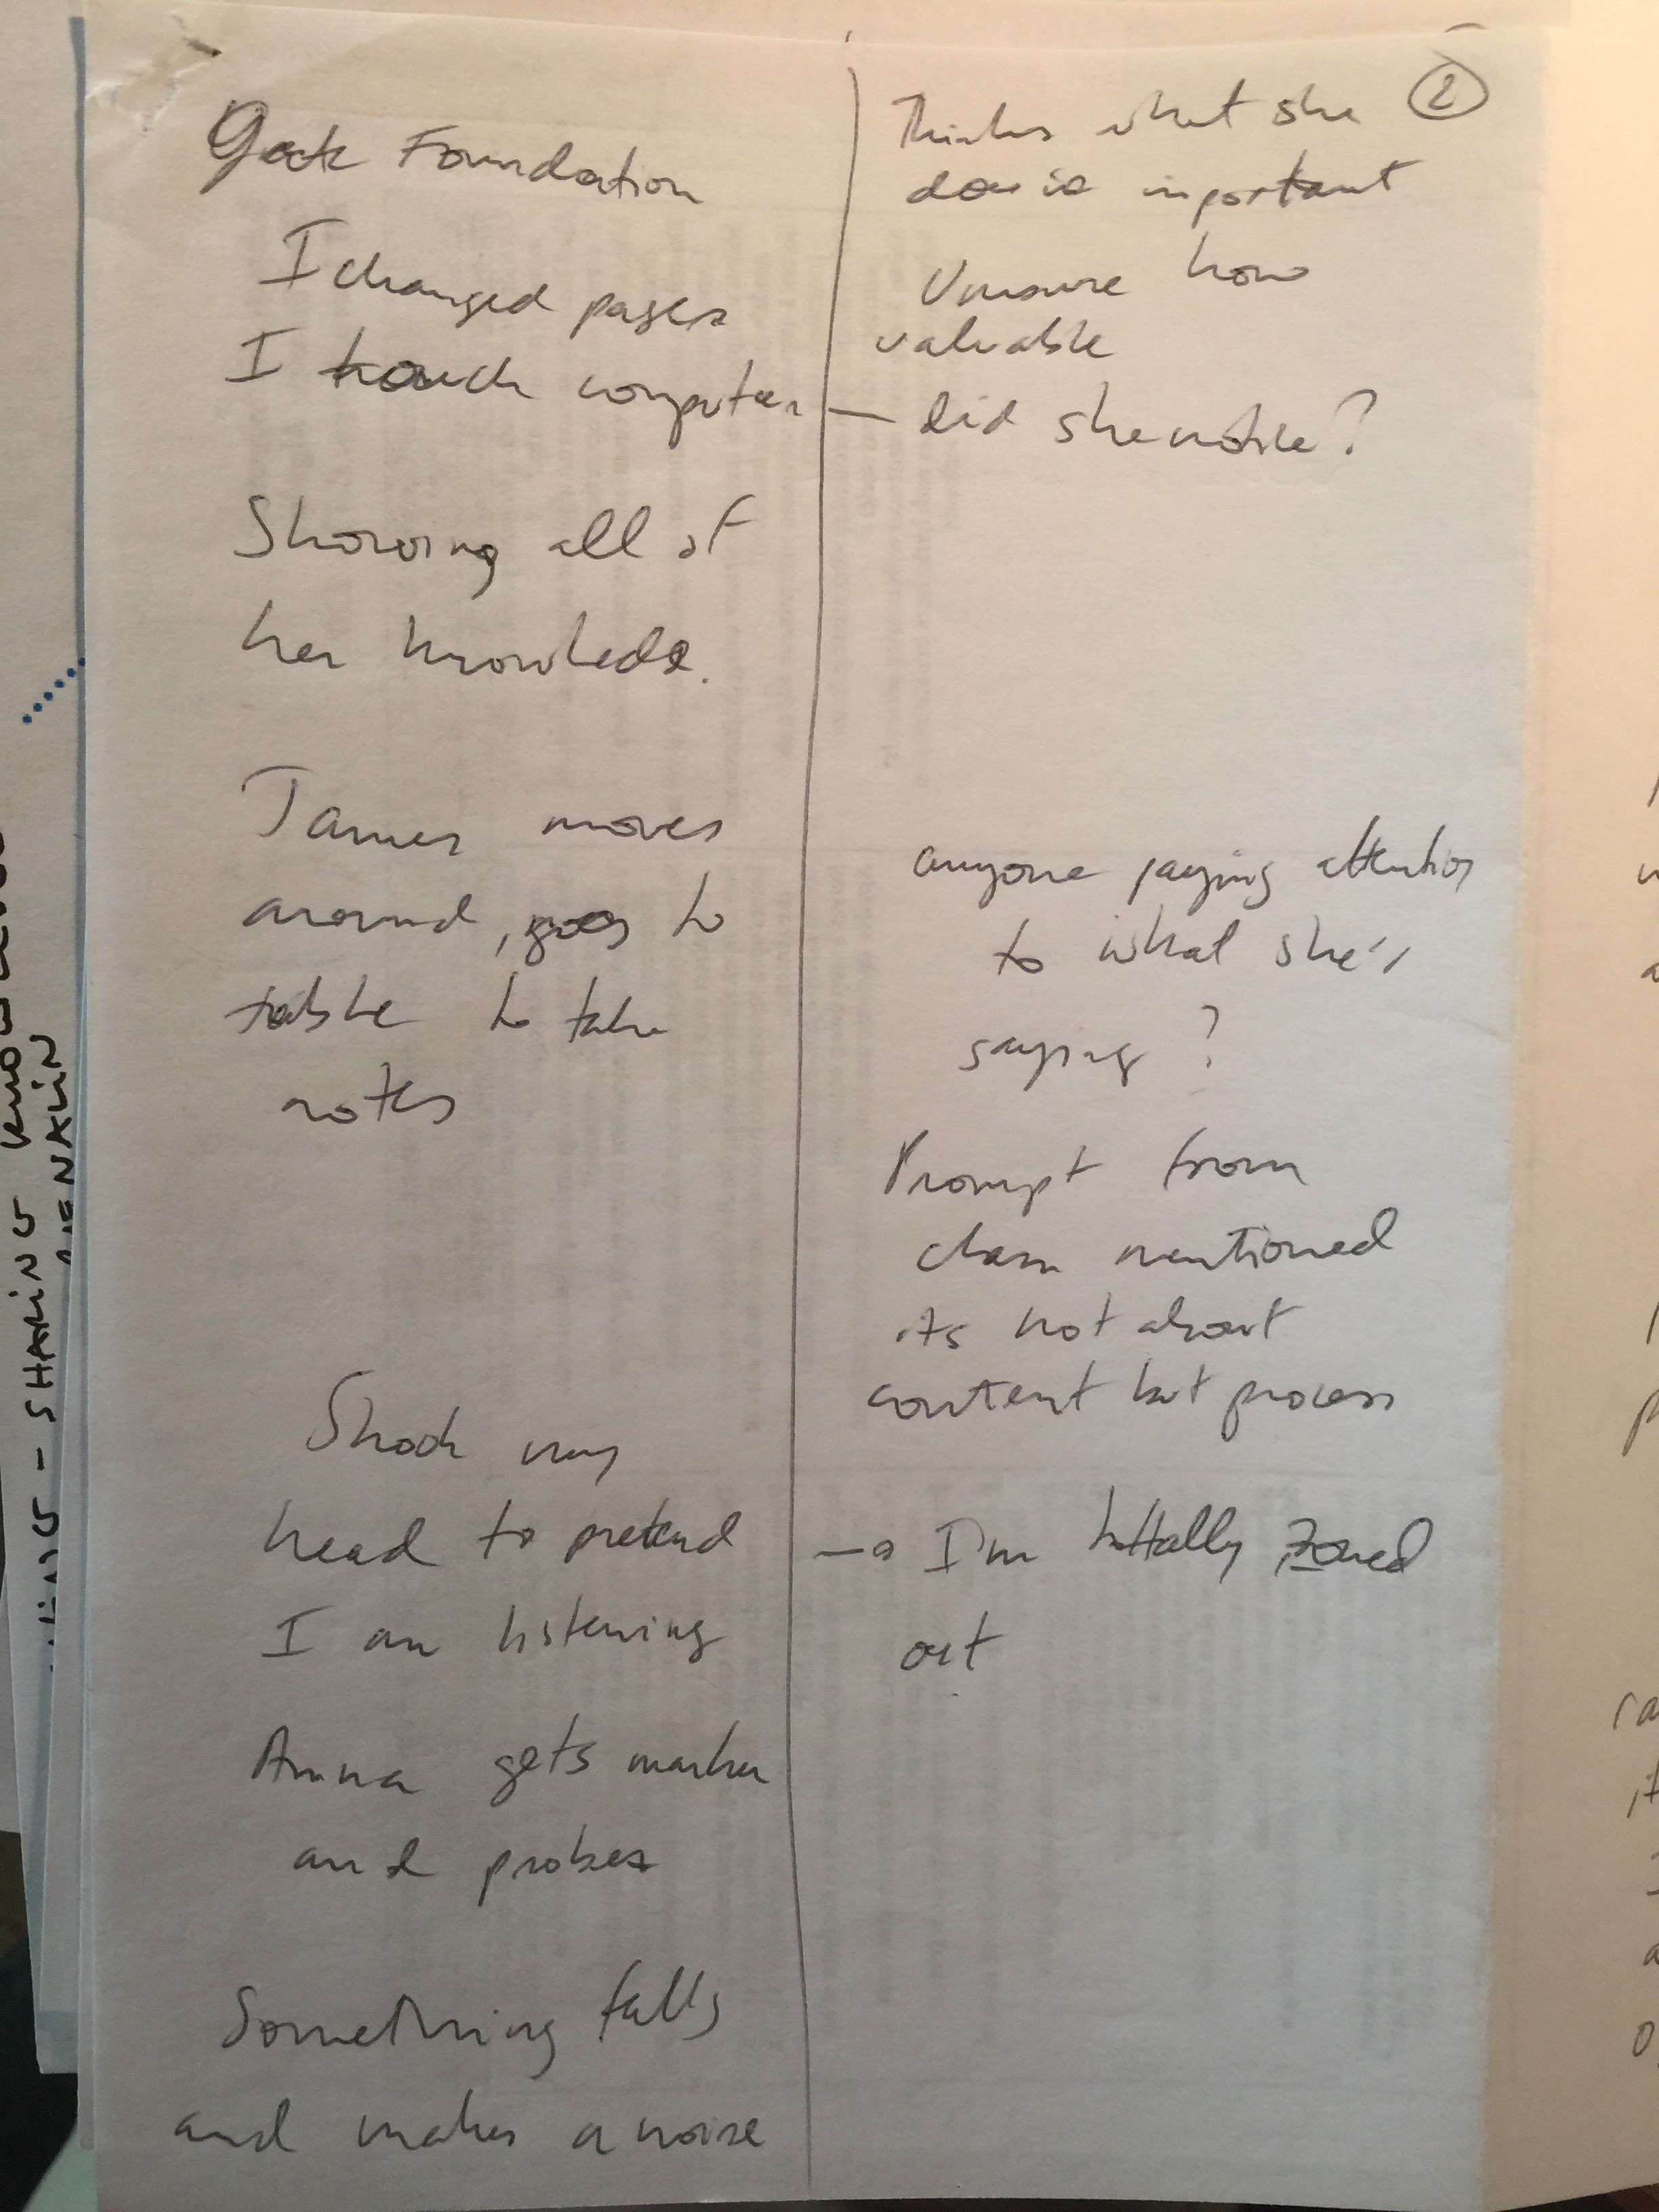 ②
Gate Foundation
I changed pages
I touch computer —
Showing all of
her knowledge.
James moves
around, goes to
table to take
notes
Shook my
head to pretend
I am listening
Anna gets marker
and probes
Something falls
and makes a noise
Thinks what she
does is important
Unsure how
valuable
did she notice?
anyone paying attention
to what she's
saying?
Prompt from
class mentioned
its not about
content but process
→ I'm tottally zoned
out
SHARING